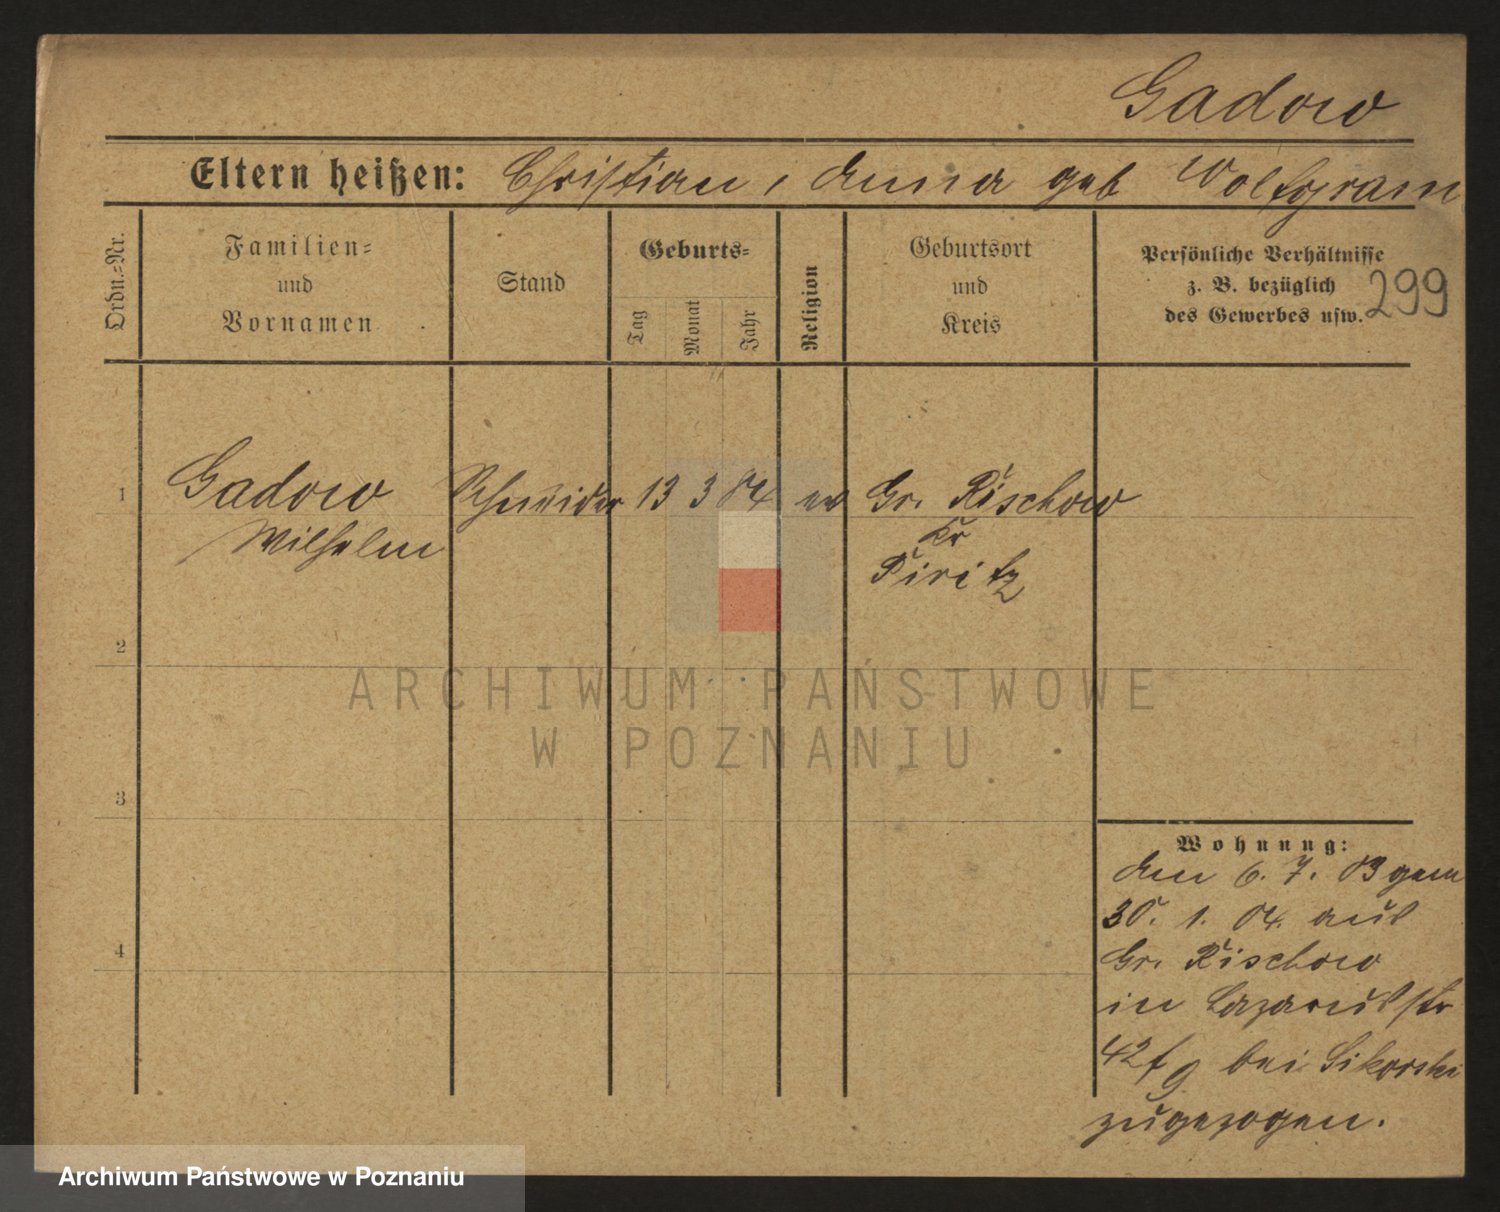 Gadow
Eltern heißen: Christian, Anna geb Wolfgram
Ordn.=Nr.
Familien=
und
Vornamen
Stand
Geburts=
Tag
Monat
Jahr
Religion
Geburtsort
und
Kreis
Persönliche Verhältnisse
z. B. bezüglich
des Gewerbes usw.
299
1 Gadow Schneider 13 3 84 ev Gr. Rischow
Wilhelm
Kr
Piritz
2
ARCHIWUM PAŃSTWOWE
W POZNANIU
3
Wohnung:
den 6. 7. 03 gem
30. 1. 04. aus
Gr. Rischow
in Lazarusstr
42 bei Sikorski
zugezogen.
4
Archiwum Państwowe w Poznaniu